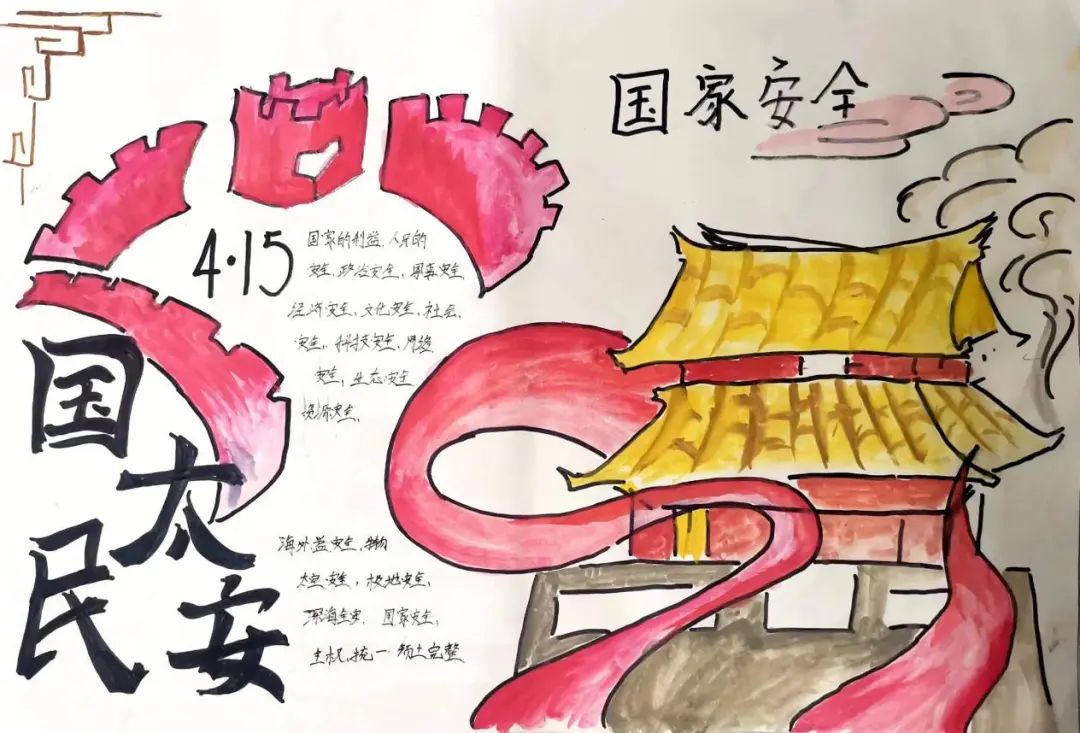 国家安全
4·15
国家的利益、人民的
安全、政治安全、安全
经济安全、文化安全、社会、
安全、科技安全、网络
安全、生态安全
资源安全、
国太
民安
海外益安全、生物
太空安全、极地安全、
深海安全、国家安全、
主权、统一、领土完整